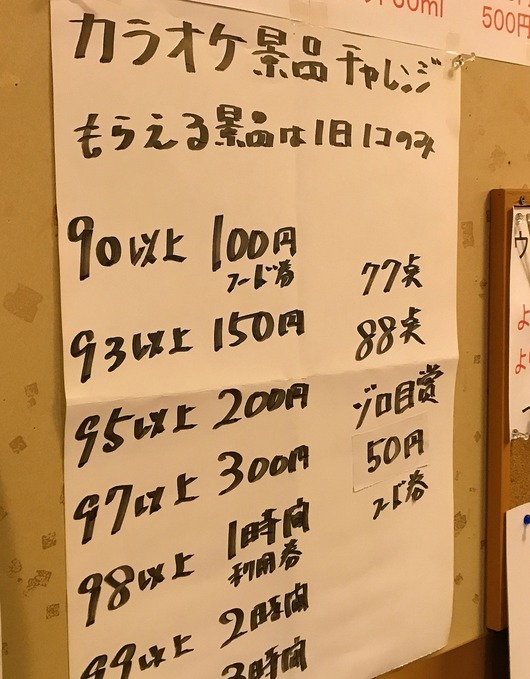 00ml
500円
カラオケ景品チャレンジ
もらえる景品は1日1コのみ
90以上 100円
フード券
93以上 150円
95以上 200円
97以上 300円
98以上 1時間
利用券
99以上 2時間
3時間
77点
88点
ゾロ目賞
50円
フード券
ウ
よ
よ